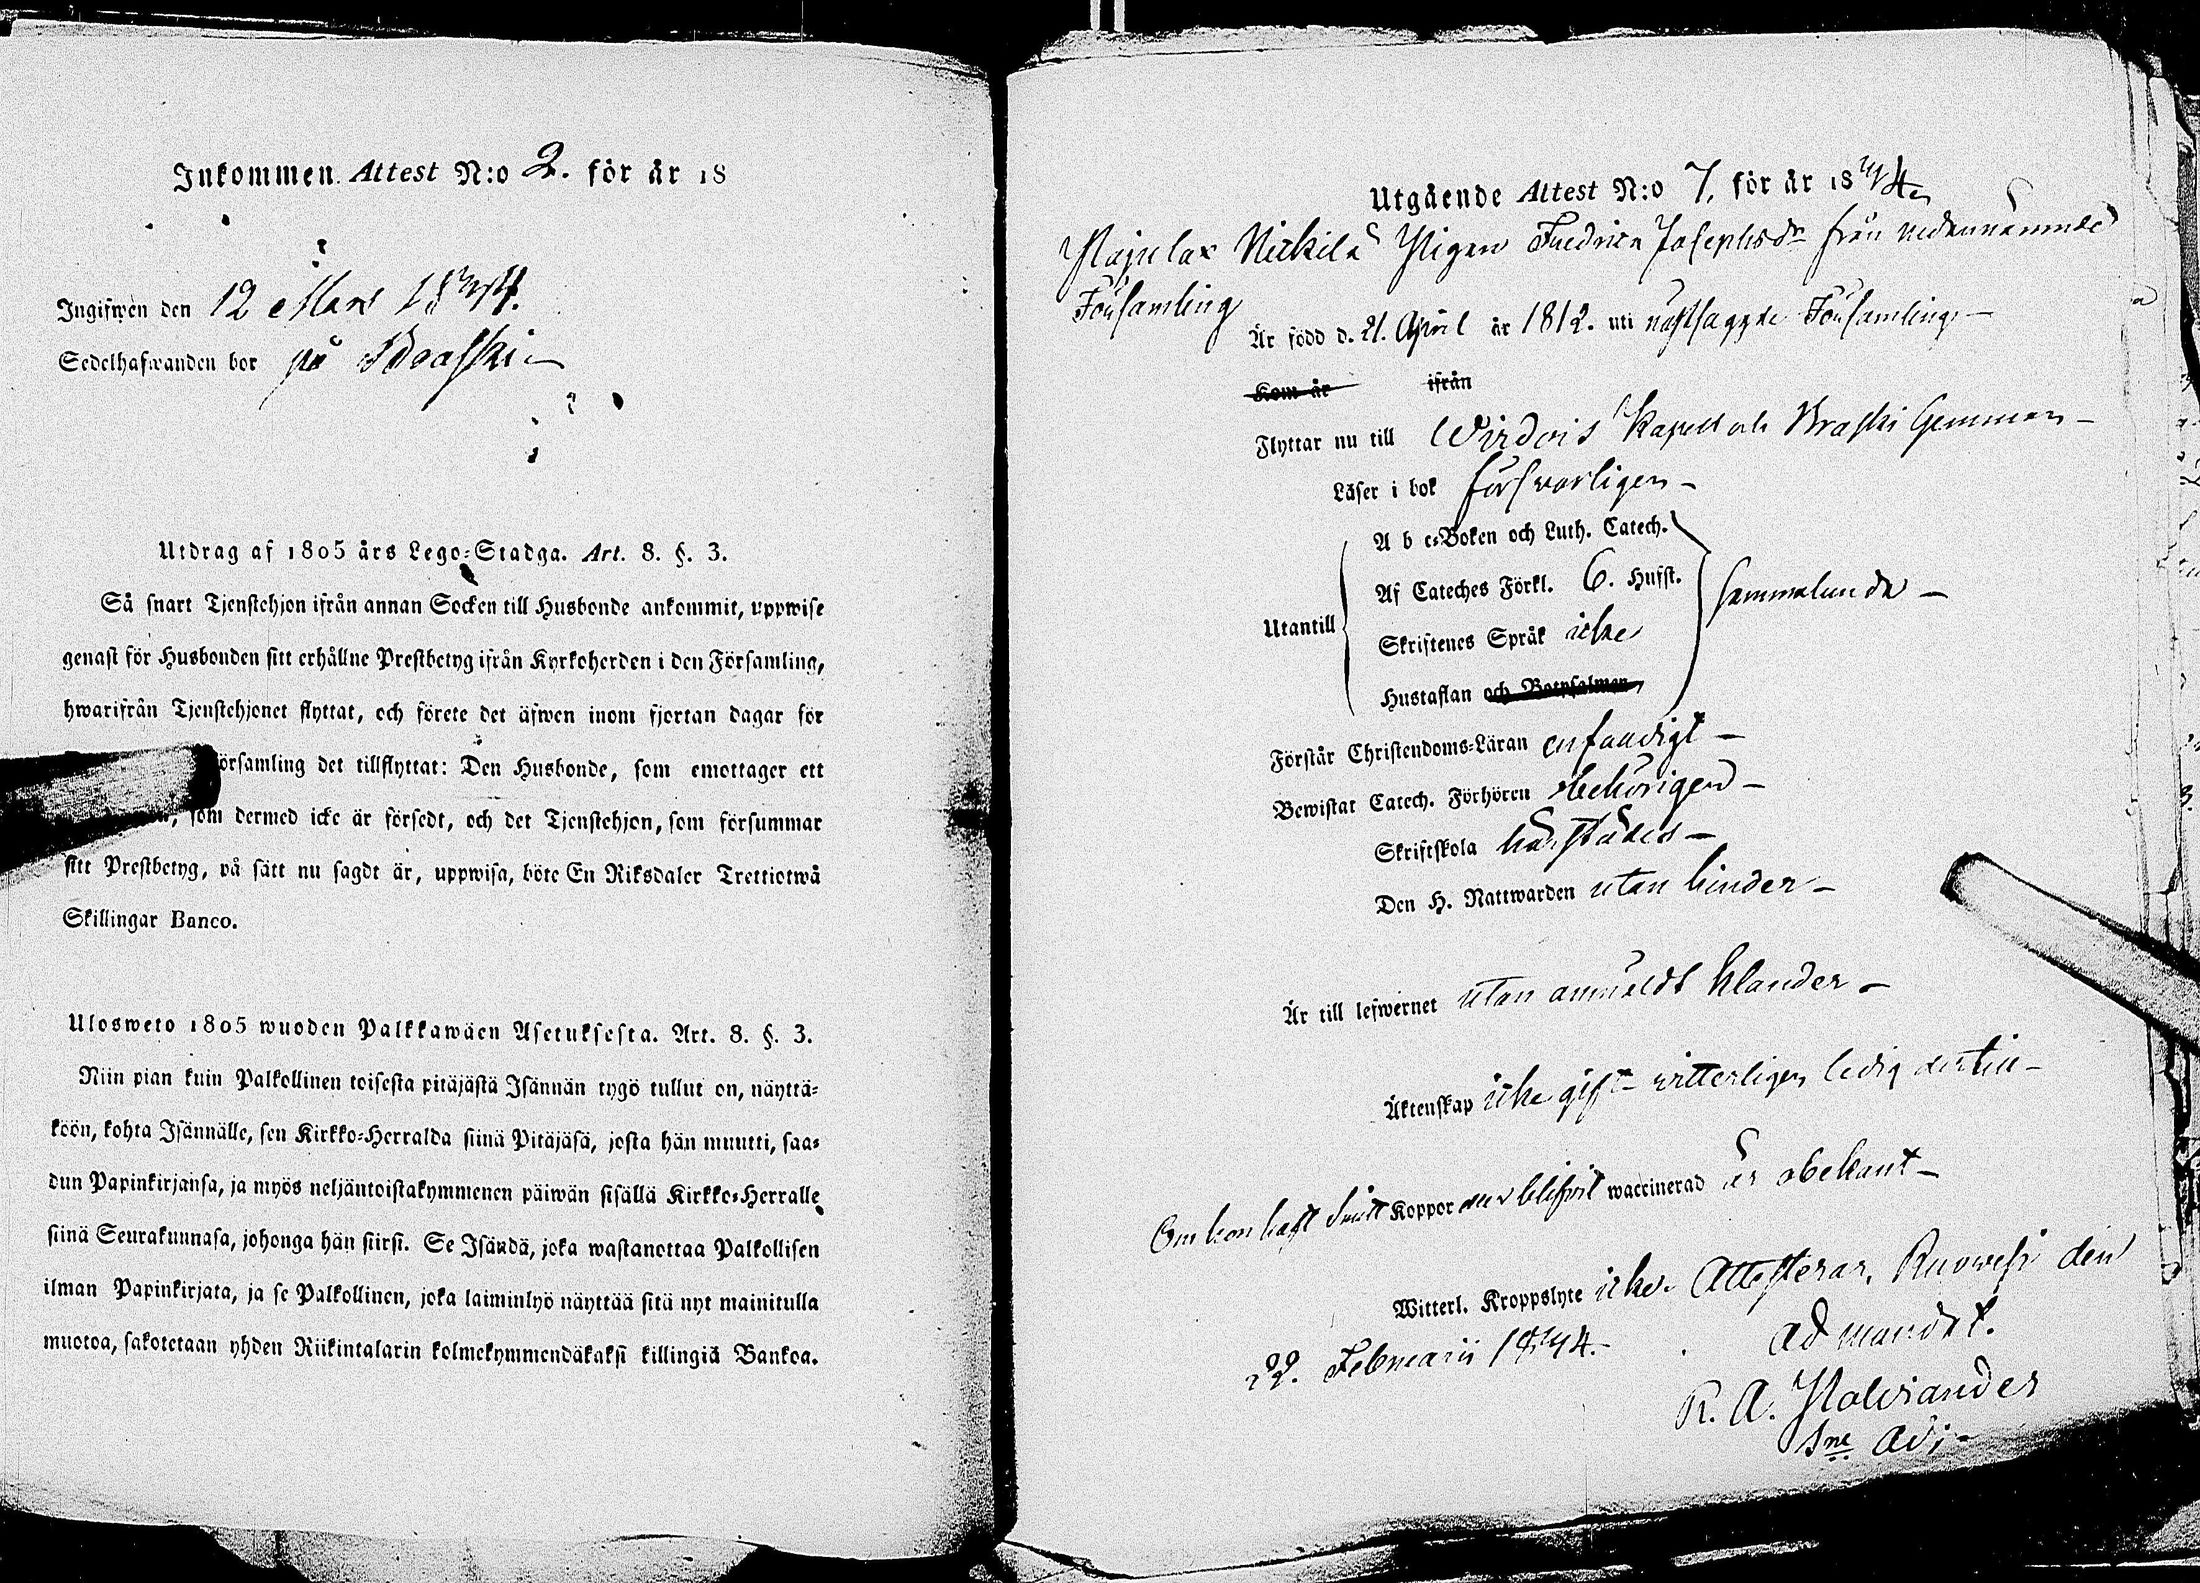 Inkommen Attest N:o 2. för år 18
Ingifwen den 12 Mars 1844.
Sedelhafwanden bor på
Utdrag af 1805 års Lego-Stadga. Art. 8. §. 3.
Så snart Tjenstehjon ifrån annan Socken till Husbonde ankommit, uppwise
genast för Husbonden sitt erhållne Prestbetyg ifrån Kyrkoherden i den Församling,
hwarifrån Tjenstehjonet flyttat, och förete det äfwen inom fjorton dagar för
örsamling det tillflyttat: Den Husbonde, som emottager ett
, som dermed icke är försedt, och det Tjenstehjon, som försummar
sitt Prestbetyg, på sätt nu sagdt är, uppwisa, böte En Riksdaler Trettiotwå
Skillingar Banco.
Ulosweto 1805 wuoden Palkkawäen Asetuksesta. Art. 8. §. 3.
Niin pian kuin Palkollinen toisesta pitäjästä Isännän tygö tullut on, näyttä-
köön, kohta Isännälle, sen Kirkko-Herralda siinä Pitäjäsä, josta hän muutti, saa-
dun Papinkirjansa, ja myös neljäntoistakymmenen päiwän sisällä Kirkko-Herralle
siinä Seurakunnasa, johonga hän siirsi. Se Isändä, joka wastanottaa Palkollisen
ilman Papinkirjata, ja se Palkollinen, joka laiminlyö näyttää sitä nyt mainitulla
muotoa, sakotetaan yhden Riikintalarin kolmekymmendäkaksi killingiä Bankoa.
Utgående Attest N:o 7. för år 1844
Pigan Fredrica Josephsdr från nedannämnde
Församling
Är född d. 21. April år 1812. uti nästsagde Församling
Kom år ifrån
Flyttar nu till Wirdois Kapell och
Läser i bok försvarligen
A b c-Boken och Luth. Catech.
Af Cateches Förkl. 6. Hufst.
Utantill
Skriftenes Språk icke
sammalunda
Hustaflan och Botpsalmen
Förstår Christendoms-Läran enfaldigt
Bewistat Catech. Förhören behörigen
Skriftskola härstädes
Den H. Nattwarden utan hinder
Är till lefwernet utan anmäldt klander
Äktenskap icke gift witterligen ledig dertill
Om hon haft Koppor eller blifvit waccinerad är obekant
Witterl. Kroppslyte icke. Attesterar, Ruowesi den
22. Februarii 1844.
ad mandat.
R. A. Holsander
Adj